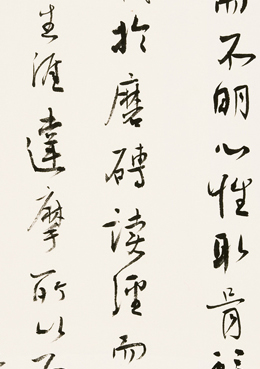 而不明心性取骨
於磨磚读經而
生涯達摩所以